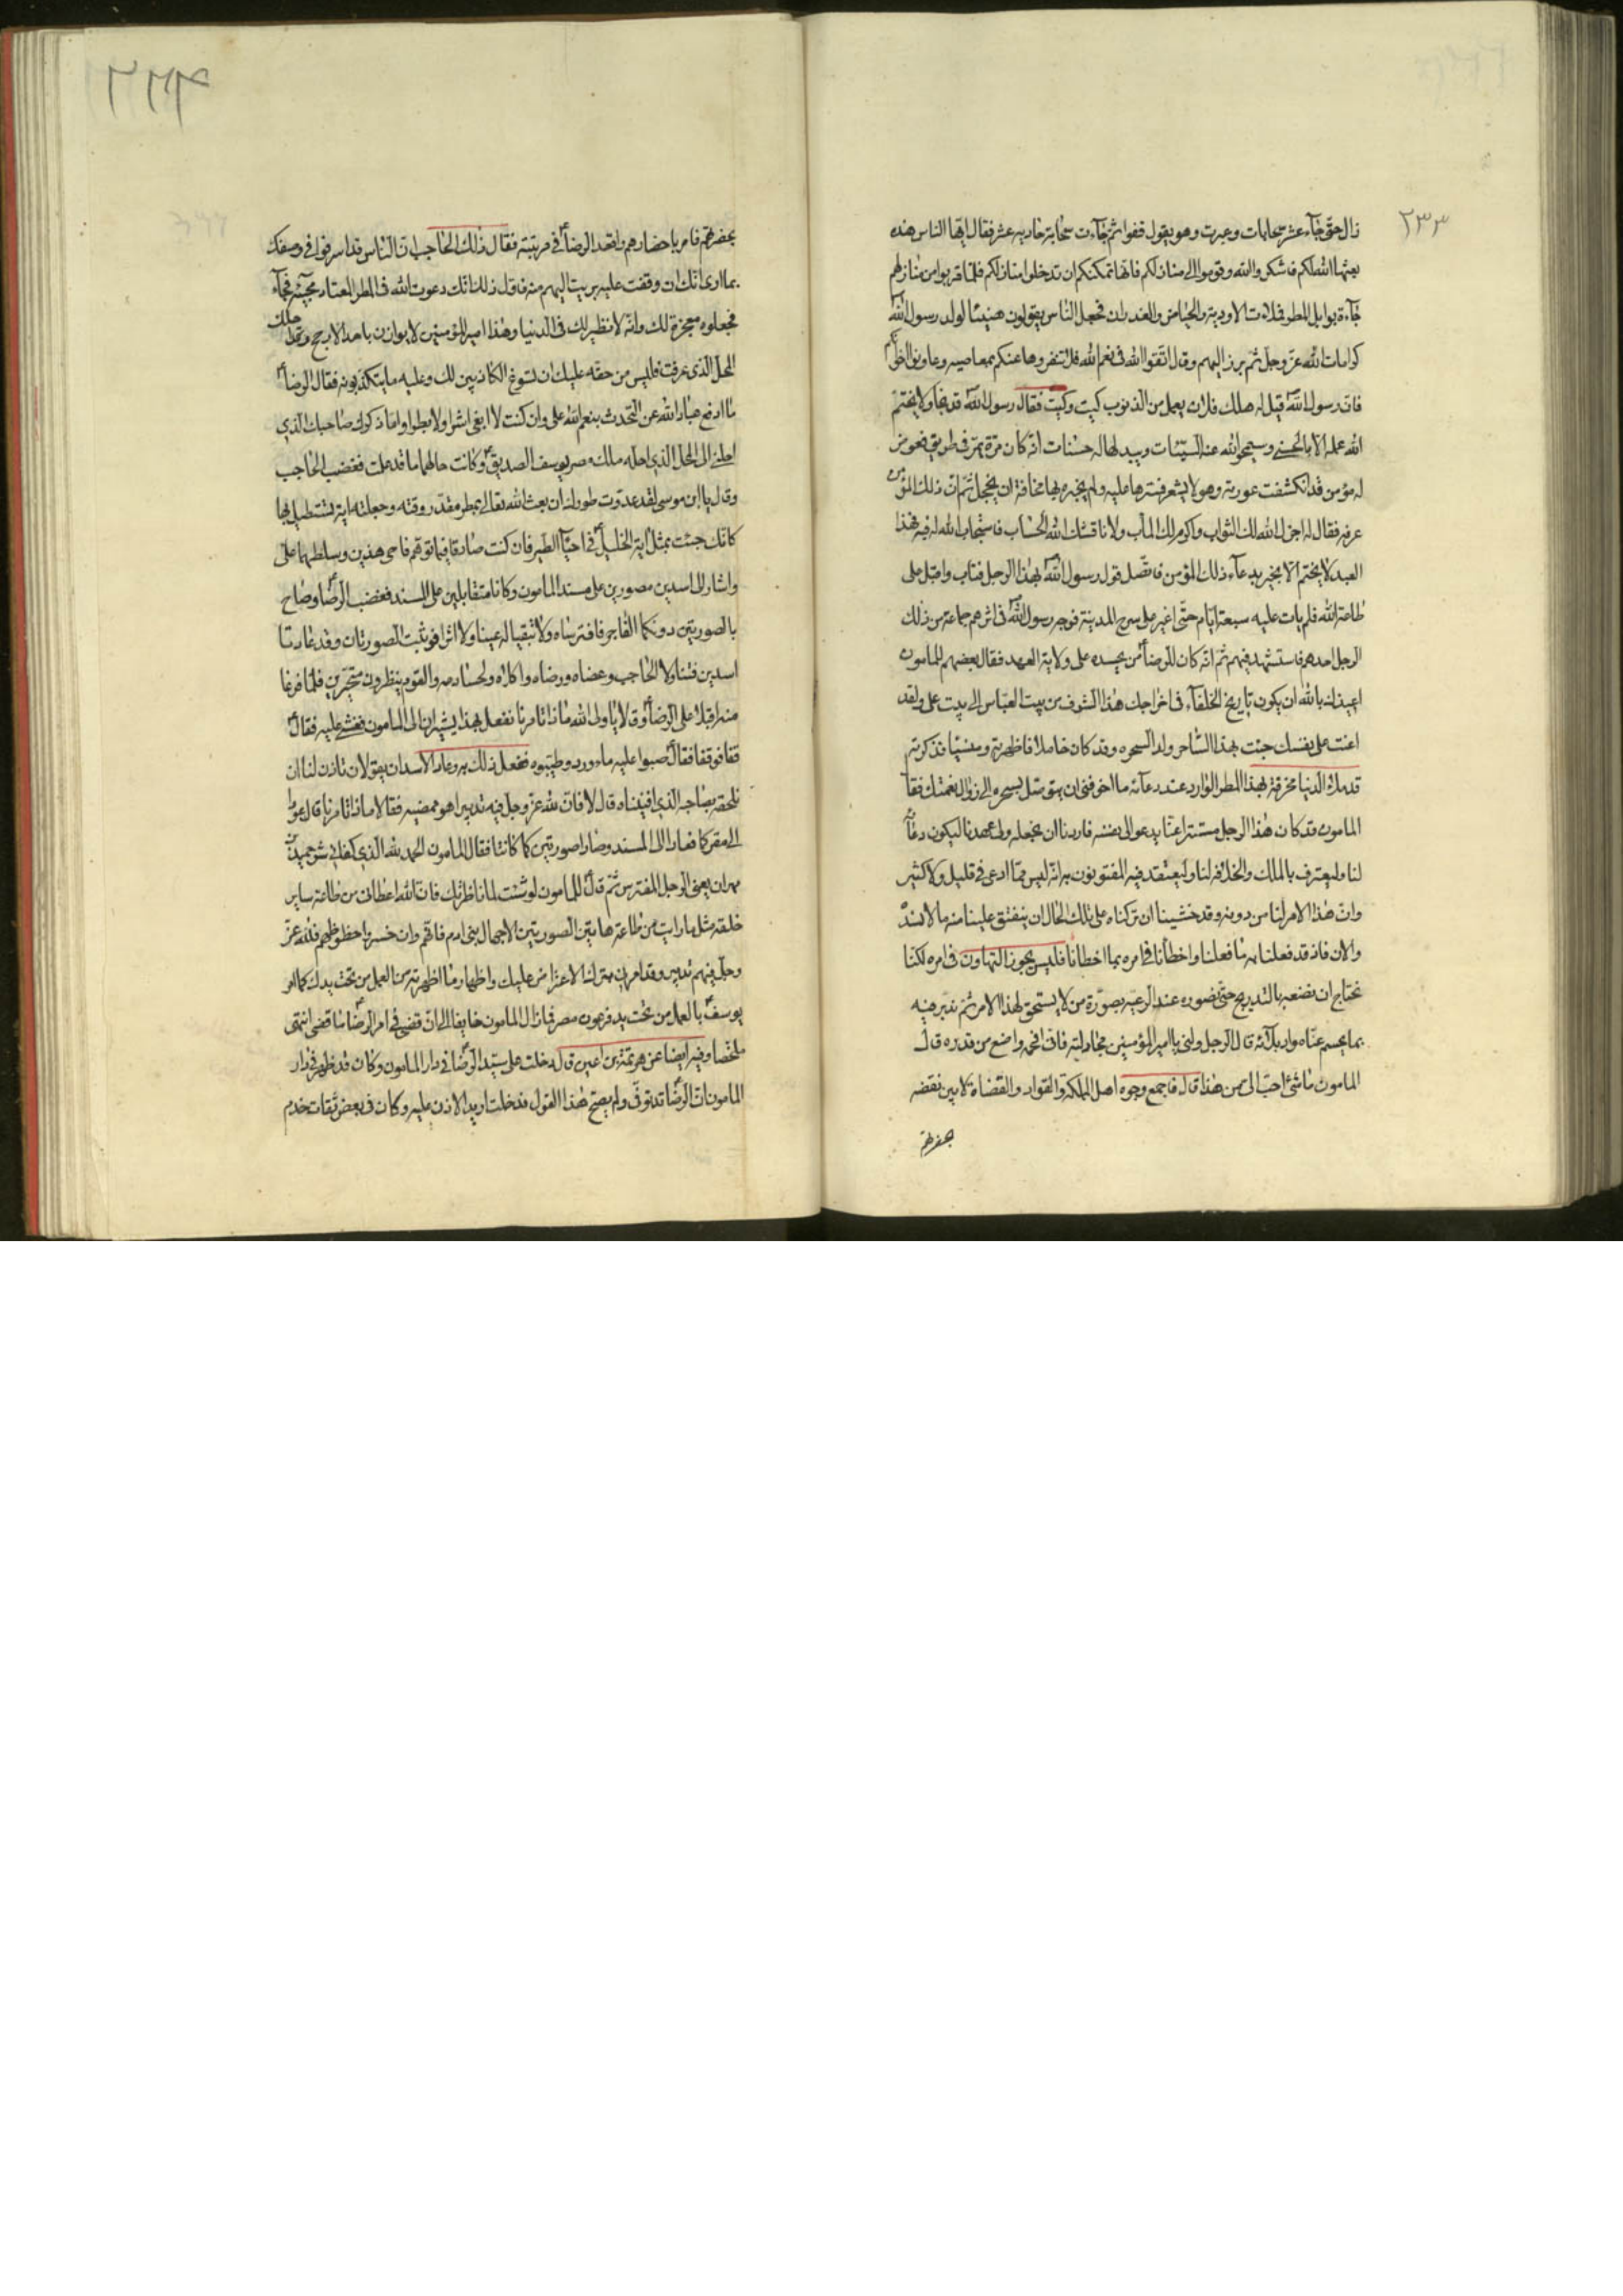 ٢٣٣
زال حتى جاءت عشر سحابات وعبرت وهو يقول قفوا ثم جاءت سحابة حادية عشر فقال ايها الناس هذه
بعثها الله لكم فاشكروا الله وقوموا الى منازلكم فانها تمكنكم ان تدخلوا منازلكم فلما قربوا من منازلهم
جاءت بوابل المطر فملات الاودية والحياض والغدران فجعل الناس يقولون هنيئا لولد رسول الله
كرامات الله عز وجل ثم برز اليهم وقال اتقوا الله في نعم الله فلا تنفروها عنكم بمعاصيه وعاونوا اخوانكم
فان رسول الله قيل له هلك فلان يعمل من الذنوب كيت وكيت فقال رسول الله قد نجا ولا يختم
الله عمله الا بالحسنى وسيمحو الله عنه السيئات ويبدلها له حسنات انه كان مرة يمر في طريق فعرض
له مؤمن قد انكشفت عورته وهو لا يشعر فسترها عليه ولم يخبره بها مخافة ان يخجل ثم ان ذلك المؤمن
عرفه فقال له اجزل الله لك الثواب واكرم لك المآب ولا ناقشك الله الحساب فاستجاب الله له فيه فهذا
العبد لا يختم الا بخير بدعاء ذلك المؤمن فاتصل قول رسول الله بهذا الرجل فتاب واقبل على
طاعة الله فلم يات عليه سبعة ايام حتى اغير على سرح المدينة فوجه رسول الله في اثرهم جماعة من ذلك
الرجل احدهم فاستشهد فيهم ثم انه كان للرضا من يحسده على ولاية العهد فقال بعضهم للمامون
اعيذك بالله ان يكون تاريخ الخلفاء في اخراجك هذا الشرف من بيت العباس الى بيت علي ولقد
اعنت على نفسك جئت بهذا الساحر ولد السحرة وقد كان خاملا فاظهرته ومنسيا فذكرته
قد ملأ الدنيا مخرقة بهذا المطر الوارد عند دعائه ما اخوفني ان يتوصل بسحره الى زوال نعمتك فقال
المامون قد كان هذا الرجل مستترا عنا يدعو الى نفسه فاردنا ان نجعله ولي عهدنا ليكون دعاؤه
لنا وليعترف بالملك والخلافة لنا وليعتقد فيه المفتونون به انه ليس مما ادعى في قليل ولا كثير
وان هذا الامر لنا من دونه وقد خشينا ان تركناه على تلك الحال ان ينفتق علينا منه ما لا نسده
والان فاذ قد فعلنا به ما فعلنا واخطأنا في امره بما اخطأنا فليس يجوز التهاون في امره لكنا
نحتاج ان نضعه بالتدريج حتى نصوره عند الرعية بصورة من لا يستحق لهذا الامر ثم ندبر فيه
بما يحسم عنا مواد بلائه قال الرجل ولني يا امير المؤمنين مجادلته فاني افحمه واضع من قدره قال
المامون ما شئ احب الي من هذا قال فاجمع وجوه اهل المملكة والقواد والقضاة لابين نقصه
بحضرتهم
٢٣٤
بحضرتهم فامر باحضارهم واقعد الرضا في مرتبته فقال ذلك الحاجب ان الناس قد اسرفوا في وصفك
بما ارى انك ان وقفت عليه برئت اليهم منه فاول ذلك انك دعوت الله في المطر المعتاد مجيئه فجاء
فجعلوه معجزة لك وانه لا نظير لك في الدنيا وهذا امير المؤمنين لا يوازن باحد الا رجح وقد احلك
المحل الذي عرفت فليس من حقه عليك ان تسوغ الكاذبين لك وعليه ما يتكذبونه فقال الرضا
ما ادفع عباد الله عن التحدث بنعم الله علي وان كنت لا ابغي اشرا ولا بطرا واما ذكرك صاحبك الذي
احلني الى المحل الذي احله ملك مصر يوسف الصديق وكانت حالهما ما قد علمت فغضب الحاجب
وقال يا ابن موسى لقد عدوت طورك ان بعث الله تعالى بمطر مقدر وقته وجعلته اية تستطيل بها
كانك جئت بمثل اية الخليل في احياء الطير فان كنت صادقا فيما توهم فاحي هذين وسلطهما علي
واشار الى اسدين مصورين على مسند المامون وكانا متقابلين على المسند فغضب الرضا وصاح
بالصورتين دونكما الفاجر فافترساه ولا تبقيا له عينا ولا اثرا فوثبت الصورتان وقد عادتا
اسدين فتناولا الحاجب وعضاه ورضاه واكلاه ولحسا دمه والقوم ينظرون متحيرين فلما فرغا
منه اقبلا على الرضا وقالا يا ولي الله ماذا تامرنا نفعل بهذا يشيران الى المامون فغشي عليه فقال
قفا فوقفا فقال صبوا عليه ماء ورد وطيبوه ففعل ذلك به وعاد الاسدان يقولان تاذن لنا ان
نلحقه بصاحبه الذي افنيناه قال لا فان لله عز وجل فيه تدبيرا هو ممضيه فقالا ماذا تامرنا قال عودا
الى مقركما فعادا الى المسند وصارا صورتين كما كانتا فقال المامون الحمد لله الذي كفاني شر حميد بن
مهران يعني الرجل المفترس ثم قال للمامون لو شئت لما ناظرتك فان الله اعطاني من طاعة ساير
خلقه مثل ما رايت من طاعة هاتين الصورتين الا جهال بني ادم فانهم وان خسروا حظوظهم فلله عز
وجل فيهم تدبير وقد امرني بترك الاعتراض عليك واظهار ما اظهرته من العمل من تحت يدك كما امر
يوسف بالعمل من تحت يد فرعون مصر فما زال المامون خايفا الى ان قضى في امر الرضا ما قضى انتهى
ملخصا وفيه ايضا عن هرثمة بن اعين قال دخلت على سيدي الرضا في دار المامون وكان قد ظهر في دار
المامون ان الرضا قد توفى ولم يصح هذا القول فدخلت اريد الاذن عليه وكان في بعض ثقات خدم